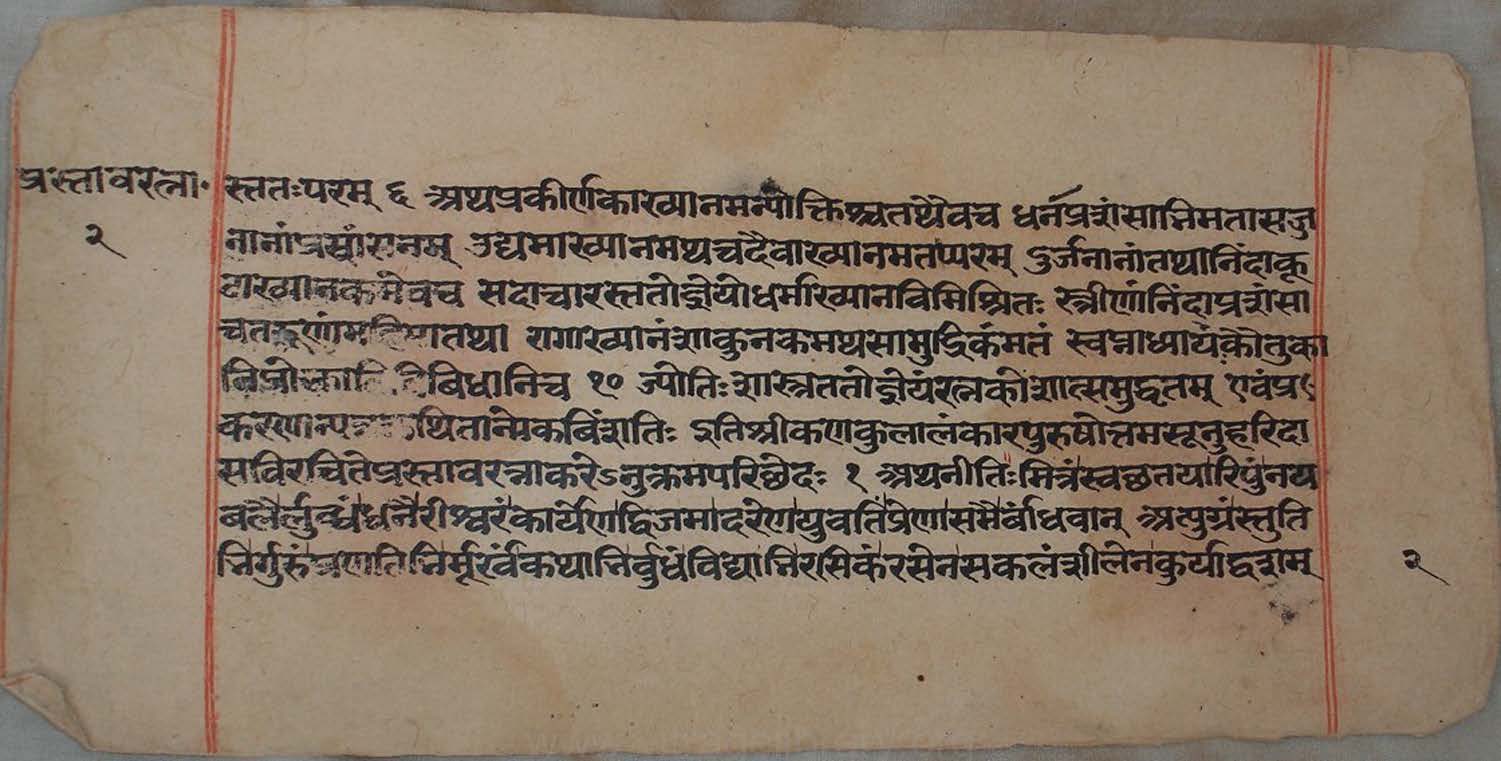 प्रस्तावरत्ना॰
२
स्ततःपरम् ६ अथप्रकीर्णकाख्यानमन्योक्तिश्चतथैवच धर्नप्रशंसाभिमतासज्ज
नानांप्रसंशनम् उद्यमाख्यानमथचदैवाख्यानमतःपरम् दुर्जनानांतथानिंदाकू
टाख्यानकमेवच सदाचारस्ततोज्ञेयोधर्माख्यानविमिश्रितः स्त्रीणांनिंदाप्रशंसा
तथा रागाख्यानंशाकुनकमथसामुद्रिकंमतं स्वप्नाध्यायंकौतुका
विविधानिच १० ज्योतिःशास्त्रततोज्ञेयंरत्नकोशात्समुद्धृतम् एवंप्र
इतिश्रीकणकुलालंकारपुरुषोत्तमसूनुहरिदा
सविरचितेप्रस्तावरत्नाकरेऽनुक्रमपरिछेदः १ अथनीतिःमित्रंस्वछतयारिपुंनय
बलैर्लुब्धंधनैरीश्वरंकार्येणद्विजमादरेणयुवतिंप्रेणासमैर्बांधवान् अत्युग्रंस्तुति
भिर्गुरुंप्रणतिभिर्मूर्खंकथाभिर्वुधंविद्याभिरसिकंरसेनसकलंशीलेनकुर्याद्वशम्
२